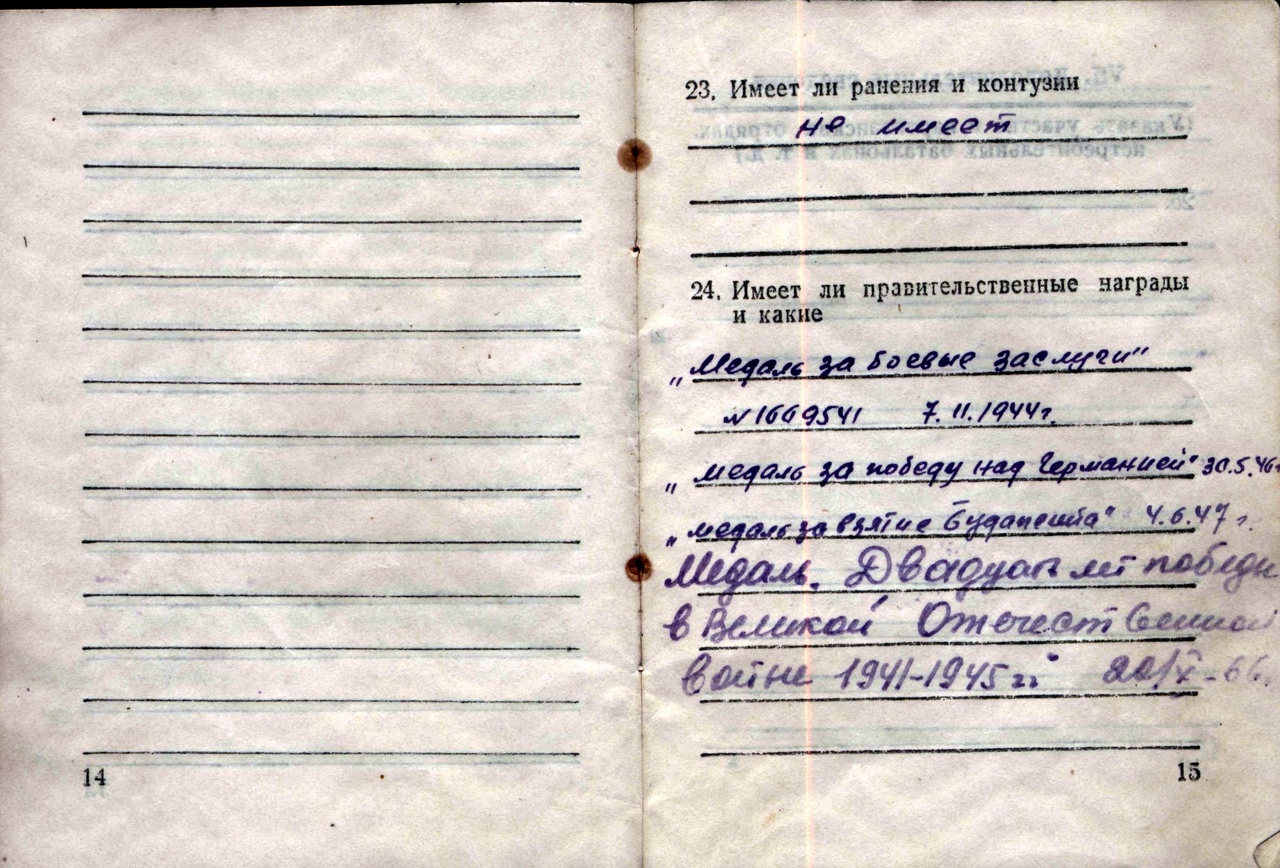 23. Имеет ли ранения и контузии
не имеет
24. Имеет ли правительственные награды
и какие
„Медаль за боевые заслуги"
№1669541 7.11.1944г.
„медаль за победу над Германией" 30.5.46г
„медаль за взятие Будапешта" 4.6.47г.
Медаль. Двадцать лет победы
в Великой Отечественной
войне 1941-1945гг"
14
15